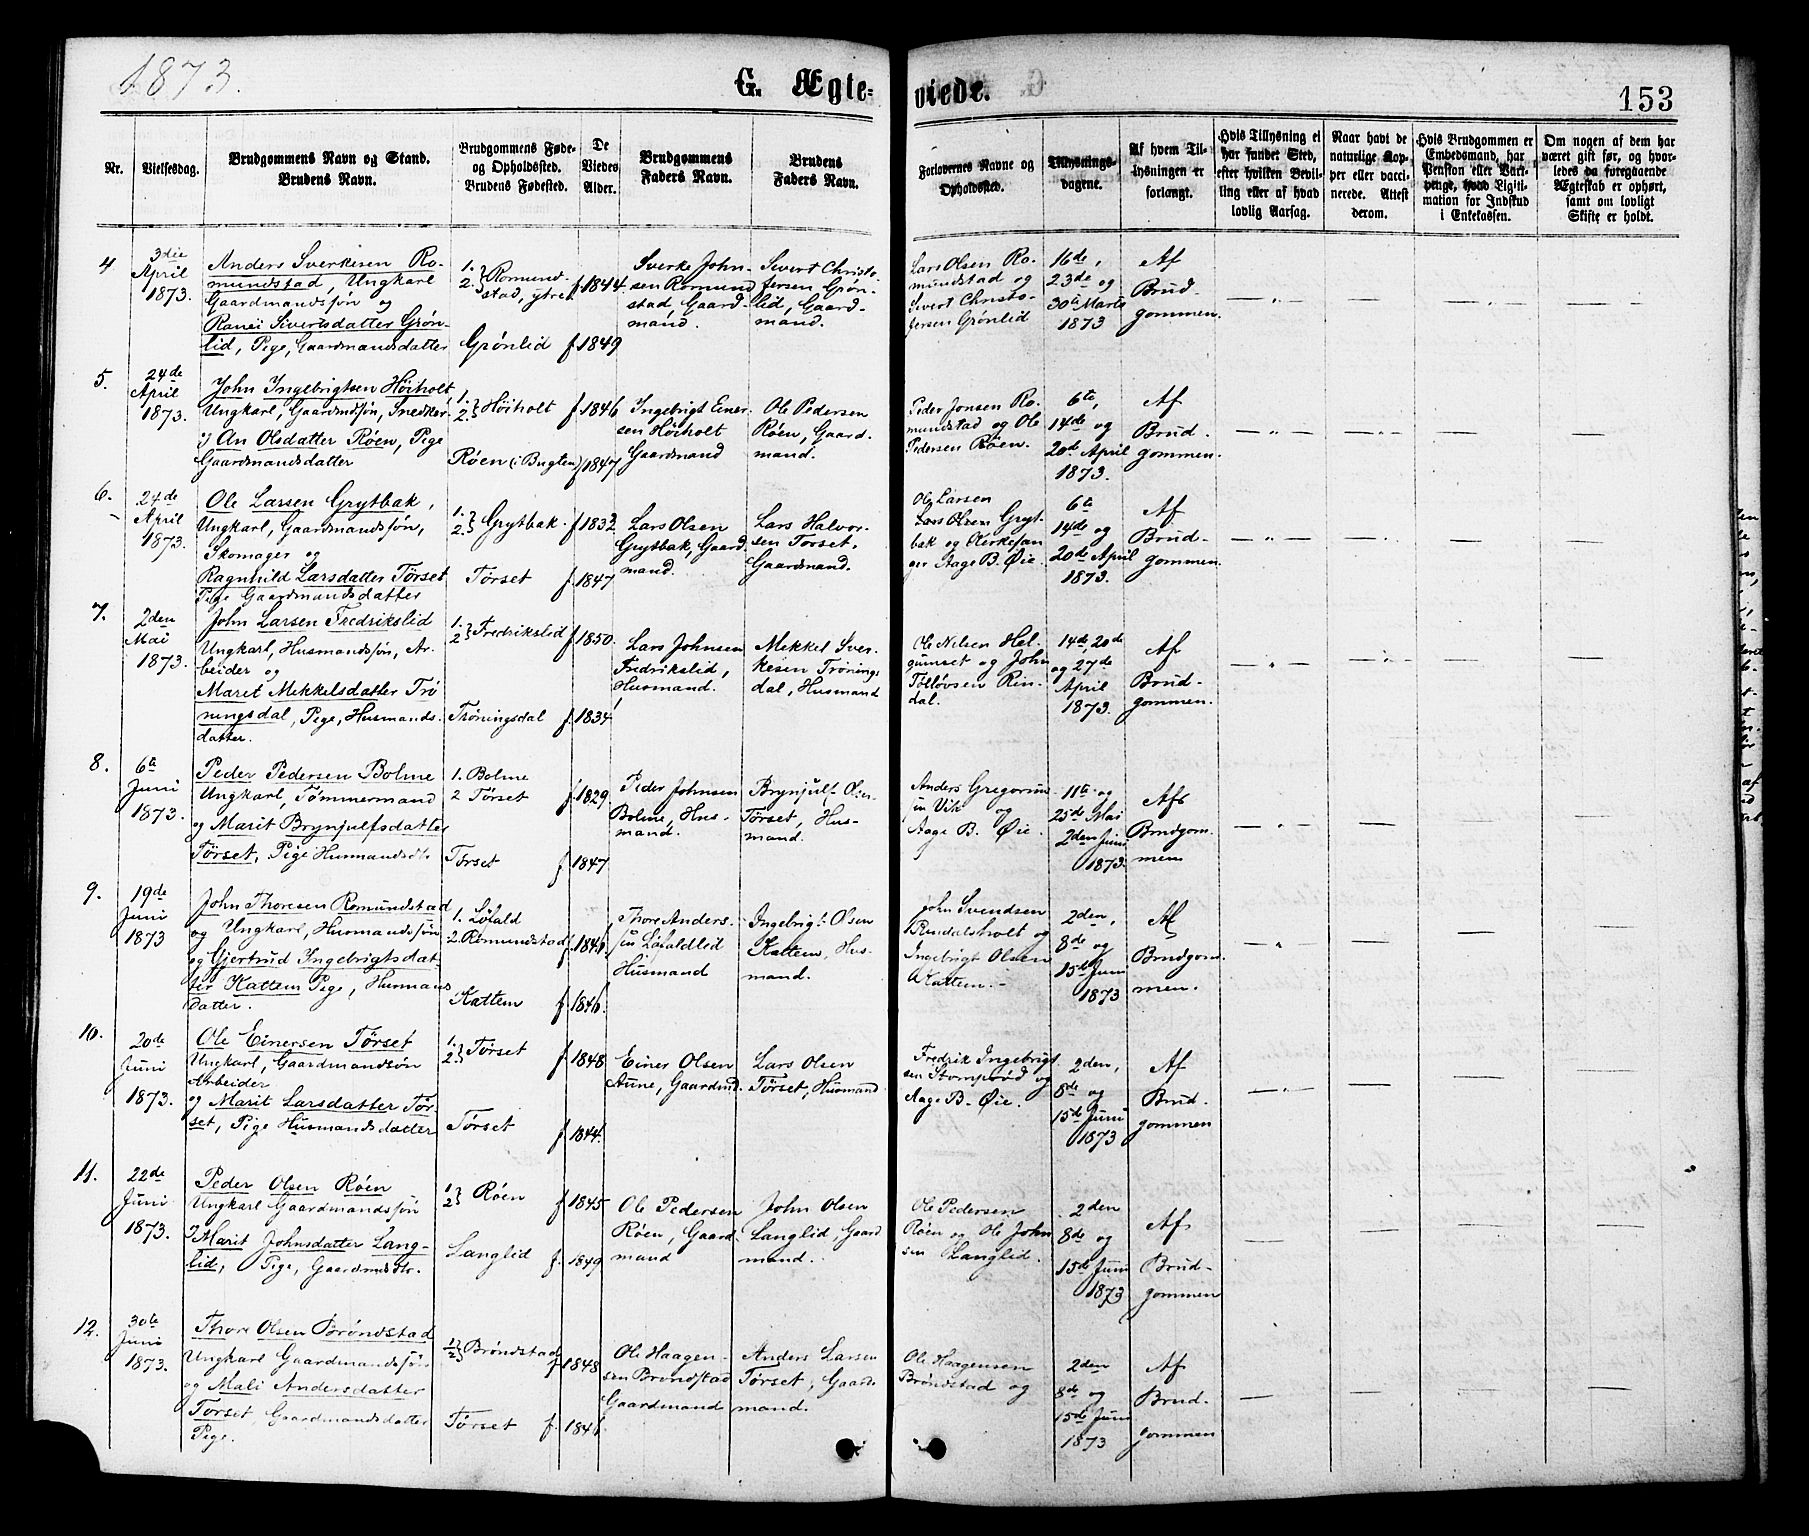 1873.
G. Ægte-
viede.
153
Nr.
Vielsesdag.
Brudgommens Navn og Stand.
Brudens Navn.
Brudgommens Føde-
og Opholdssted.
Brudens Fødested.
De
Viedes
Alder.
Brudgommens
Faders Navn.
Brudens
Faders Navn.
Forlovernes Navne og
Opholdssted.
Tillysnings-
dagene.
Af hvem Til-
lysningen er
forlangt.
Hvis Tillysning ei
har fundet Sted,
efter hvilken Bevil-
ling eller af hvad
lovlig Aarsag.
Naar havt de
naturlige Kop-
per eller vacci-
nerede. Attest
derom.
Hvis Brudgommen er
Embedsmand, har
Pension eller Vart-
penge, hvad Ligiti-
mation for Indskud
i Enkekassen.
Om nogen af dem har
været gift før, og hvor-
ledes da foregaaende
Ægteskab er ophørt,
samt om lovligt
Skifte er holdt.
4
3die
April
1873.
Anders Sverkesen Ro-
mundstad, Ungkarl
Gaardmandsøn og
Ranei Sivertsdatter Grøn-
lid, Pige, Gaardmandsdatter
1.
2. } Romund-
stad, ytre
f. 1844
Grønlid f 1849
Sverke John-
sen Romund
stad, Gaard-
mand.
Sivert Christo-
fersen Grøn-
lid, Gaard-
mand.
Lars Olsen Ro-
mundstad og
Sivert Christo-
fersen Grønlid
16de,
23de og
30te Marts
1873
Af
Brud-
gommen.
5.
24de
April
1873.
John Ingebrigtsen Høiholt,
Ungkarl, Gaardmdsøn, Snedker
og An Olsdatter Røen, Pige
Gaardmandsdatter
1.
2. } Høiholt f. 1846
Røen (i Bugten) 1847
Ingebrigt Einer-
sen Høiholt
Gaardmand
Ole Pedersen
Røen, Gaard-
mand.
Peder Jonsen Ro-
mundstad og Ole
Pedersen Røen.
6te,
14de og
20de April
1873.
Af
Brud-
gommen.
6.
24de
April
1873.
Ole Larsen Grytbak,
Ungkarl, Gaardmandsøn,
Skomager og
Ragnhild Larsdatter Tørset
Pige Gaardmandsdatter
1.
2. } Grytbak. f 1832
Tørset f 1847
Lars Olsen
Grytbak, Gaard
mand.
Lars Halvor-
sen Tørset,
Gaardmand.
Ole Larsen
Lars Olsen Gryt-
bak og Kirkesan
ger Aage B. Øie.
6te
14de og
20de April
1873.
Af
Brud-
gommen.
7.
2den
Mai
1873.
John Larsen Fredrikslid
Ungkarl, Husmandsøn, Ar-
beider og
Maret Mekkelsdatter Trø
ningsdal, Pige, Husmands-
datter.
1.
2 } Fredrikslid f 1850.
Trøningsdal f. 1834
Lars Johnsen
Fredrikslid,
Husmand.
Mekkel Sver-
kesen Trønings
dal, Husmand
Ole Nilsen Hel-
gumset og John
Tolløvsen Rin-
dal.
14de, 20de
og 27de
April
1873.
Af
Brud-
gommen.
8.
6te
Juni
1873.
Peder Pedersen Bolme
Ungkarl, Tømmermand
og Marit Brynjulfsdatter
Tørset, Pige Husmandsdtr
1. Bolme
2 Tørset f. 1829
Tørset f 1847
Peder Johnsen
Bolme, Hus-
mand.
Brynjulf Olsen
Tørset, Hus-
mand.
Anders Gregorius-
sen Vik og
Aage B. Øie.
11te og
25de Mai
2den Juni
1873.
Af
Brudgom-
men
9.
19de
Juni
1873
John Thoresen Romundstad
og Ungkarl, Husmandsøn
og Gjertrud Ingebrigtsdat-
ter Kattem Pige, Husmans
datter.
1. Løfald
2. Romundstad f. 1846
Kattem f. 1846.
Thore Anders-
sen Løfaldlid
Husmand
Ingebrigt Olsen
Kattem, Hus-
mand.
John Svendsen
Rindalsholt og
Ingebrigt Olsen
Kattem.
2den,
8de og
15de Juni
1873
Af
Brudgom-
men.
10.
20de
Juni
1873.
Ole Einersen Tørset
Ungkarl, Gaardmandsøn
Arbeider
og Marit Larsdatter Tør-
set, Pige Husmandsdatter
1.
2 } Tørset f 1848
Tørset f. 1844.
Einer Olsen
Aune, Gaardmd.
Lars Olsen
Tørset, Husmand
Fredrik Ingebrigt
sen Stomprød og
Aage B. Øie.
2den,
8de og
15de Juni
1873
Af
Brud-
gommen
11.
22de
Juni
1873.
Peder Olsen Røen
Ungkarl Gaardmandsøn
og Marit Johnsdatter Lang-
lid, Pige, Gaardmdsdtr.
1
2 } Røen f 1845
Langlid f. 1849
Ole Pedersen
Røen, Gaard-
mand
John Olsen
Langlid, Gaard
mand.
Ole Pedersen
Røen og Ole John
sen Langlid.
2den
8de og
15de Juni
1873
Af
Brud-
gommen
12.
30te
Juni
1873.
Thore Olsen Brøndstad
Ungkarl Gaardmandsøn
og Mali Andersdatter
Tørset, Gaardmandsdatter
Pige.
1
2 } Brøndstad f 1848
Tørset f. 1846
Ole Haagen-
sen Brøndstad
Gaardmand
Anders Larsen
Tørset, Gaard-
mand.
Ole Haagensen
Brøndstad og
2den
8de og
15de Juni
1873
Af
Brud-
gommen